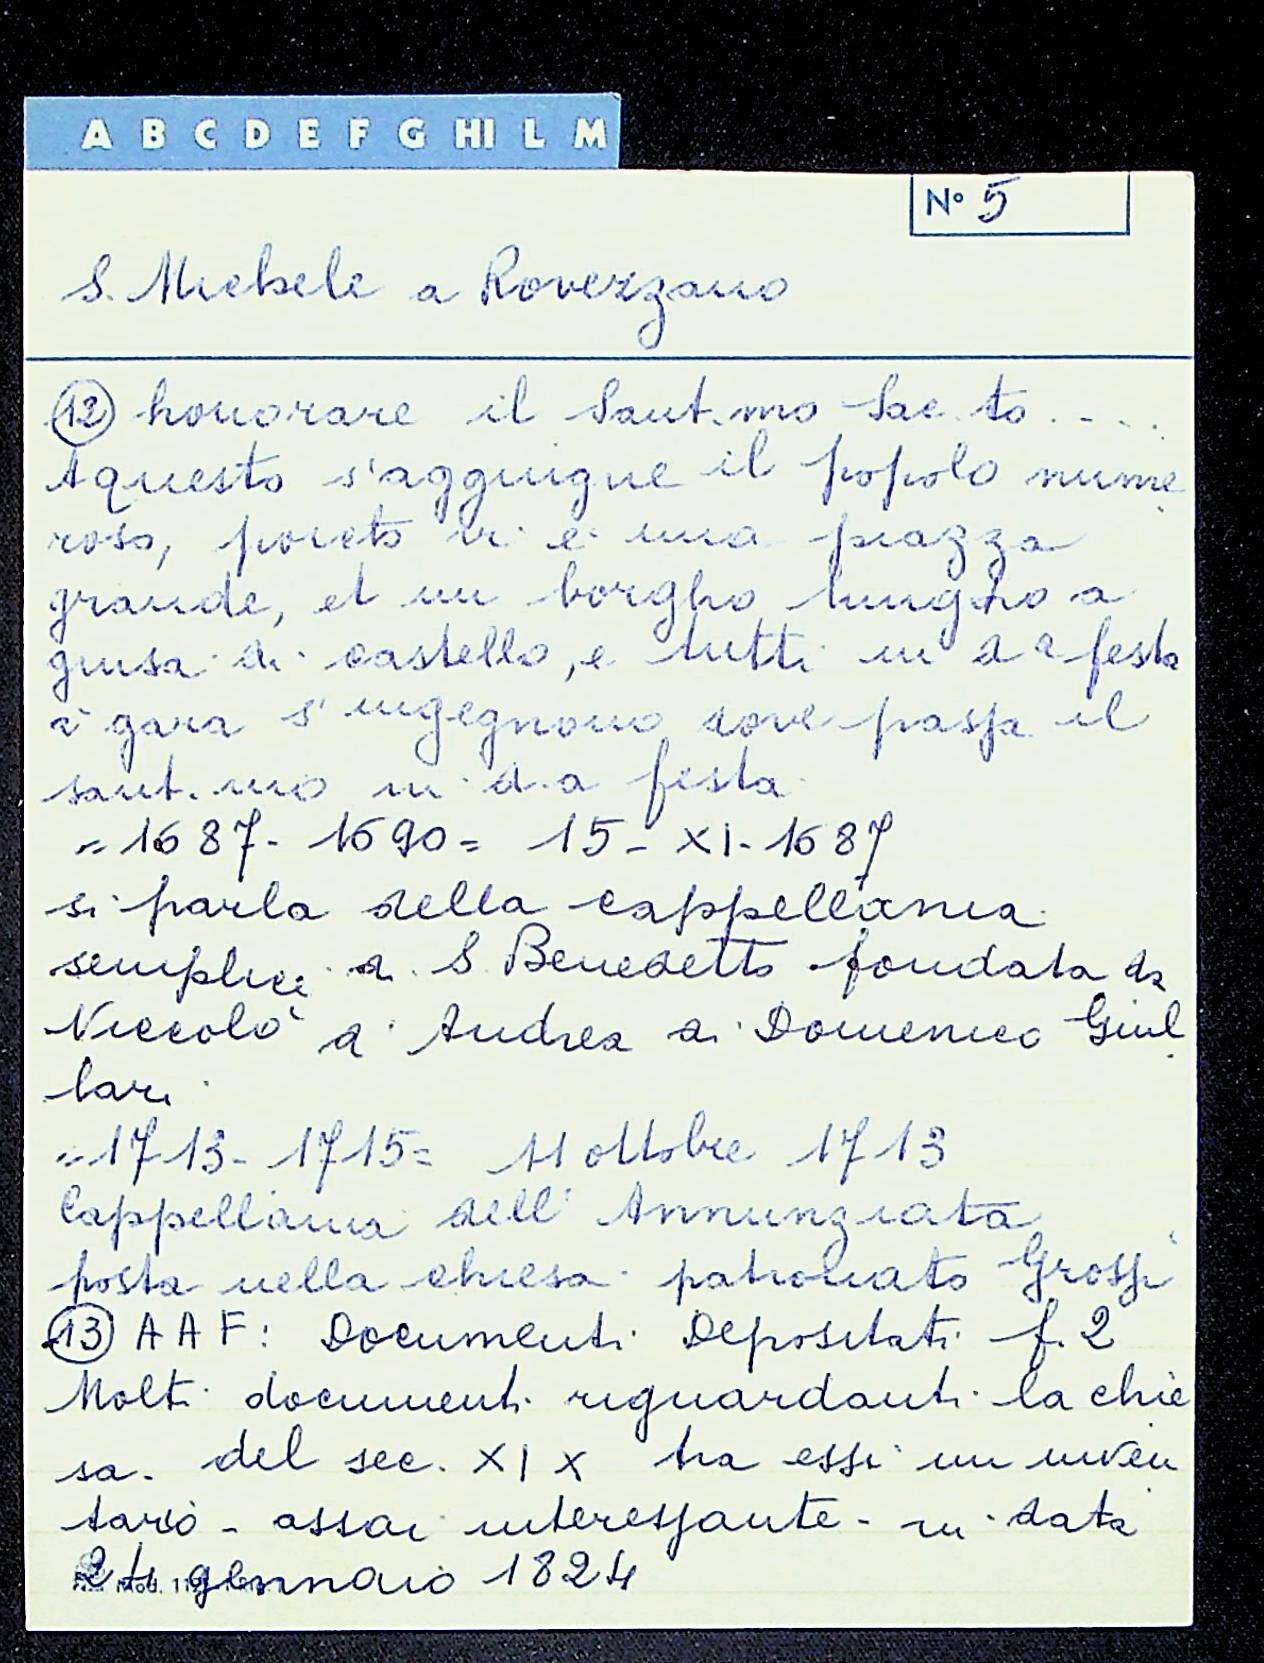 A B C D E F G HI L M
N° 5
S. Michele a Rovezzano
(12) honorare il Sant.mo Sac.to....
A questo s'aggiugne il popolo nume
roso, poiche vi è una piazza
grande, et un borgho lungho a
guisa di castello, e tutti in d.a festa
à gara s'ingegnono dove passa il
sant.mo in d.a festa
" 1687-1690 = 15-XI-1687
si parla della cappellania
semplice di S. Benedetto fondata da
Niccolò d'Andrea di Domenico Giul
lari
" 1713-1715 = 11 ottobre 1713
Cappellania dell'Annunziata
posta nella chiesa patronato Grossi
(13) A A F: Documenti Depositati f. 2
Molti documenti riguardanti la chie
sa. del sec. XIX tra essi un inven
tario - assai interessante - in data
24 gennaio 1824